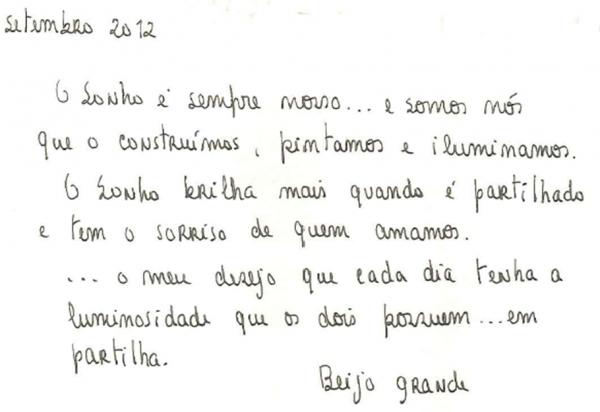 setembro 2012
O sonho é sempre nosso... e somos nós
que o construímos, pintamos e iluminamos.
O sonho brilha mais quando é partilhado
e tem o sorriso de quem amamos.
... o meu desejo que cada dia tenha a
luminosidade que os dois possuem... em
partilha.
Beijo grande